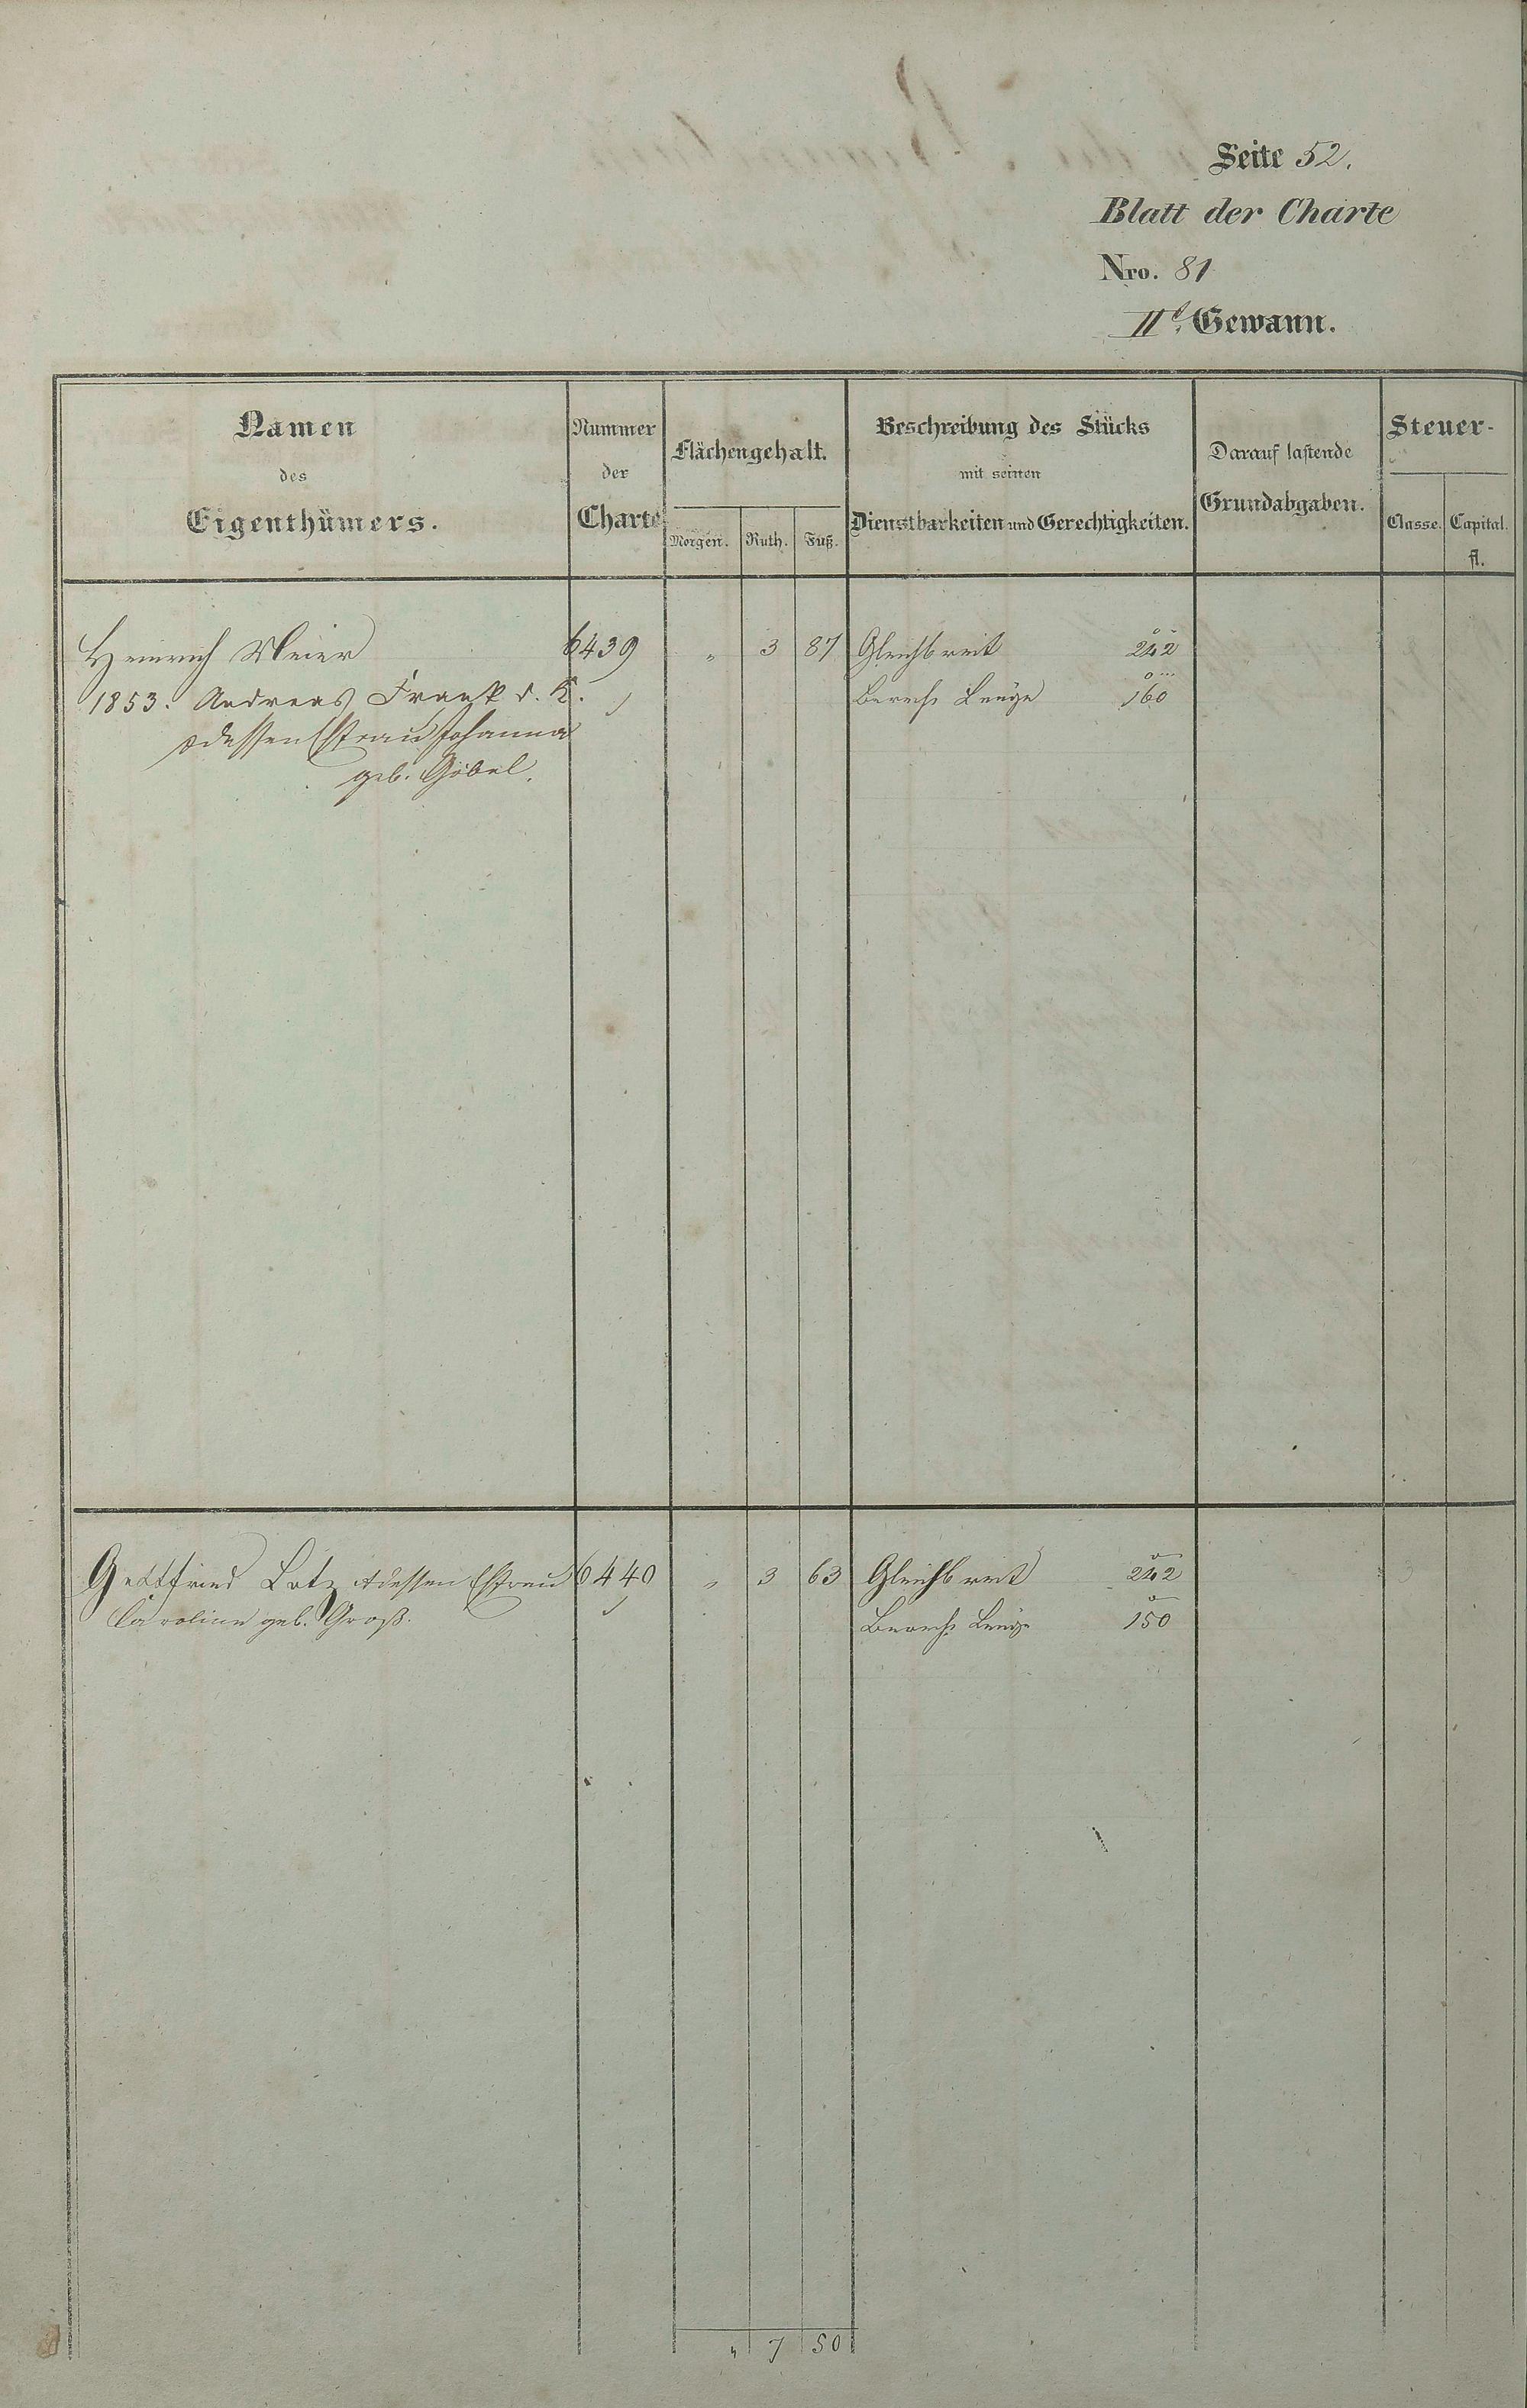 Seite 52.
Blatt der Charte
Nro. 81
II.te Gewann.
Namen
des
Eigenthümers.
Nummer
der
Charte
Flächengehalt.
Morgen. Ruth. Fuß.
Beschreibung des Stücks
mit seinen
Dienstbarkeiten und Gerechtigkeiten.
Darauf lastende
Grundabgaben.
Steuer-
Classe. Capital.
fl.
Heinrich Meier 6439 " 3 87 Gleichbreit 242
1853. Andreas Frank d. K. Berech Länge 160
& dessen Ehfrau Johanna
geb. Göbel.
Gottfried Lotz & dessen Ehfrau 6440 " 3 63 Gleichbreit 242
Caroline geb. Groß. Berech Länge 150
" 7 50